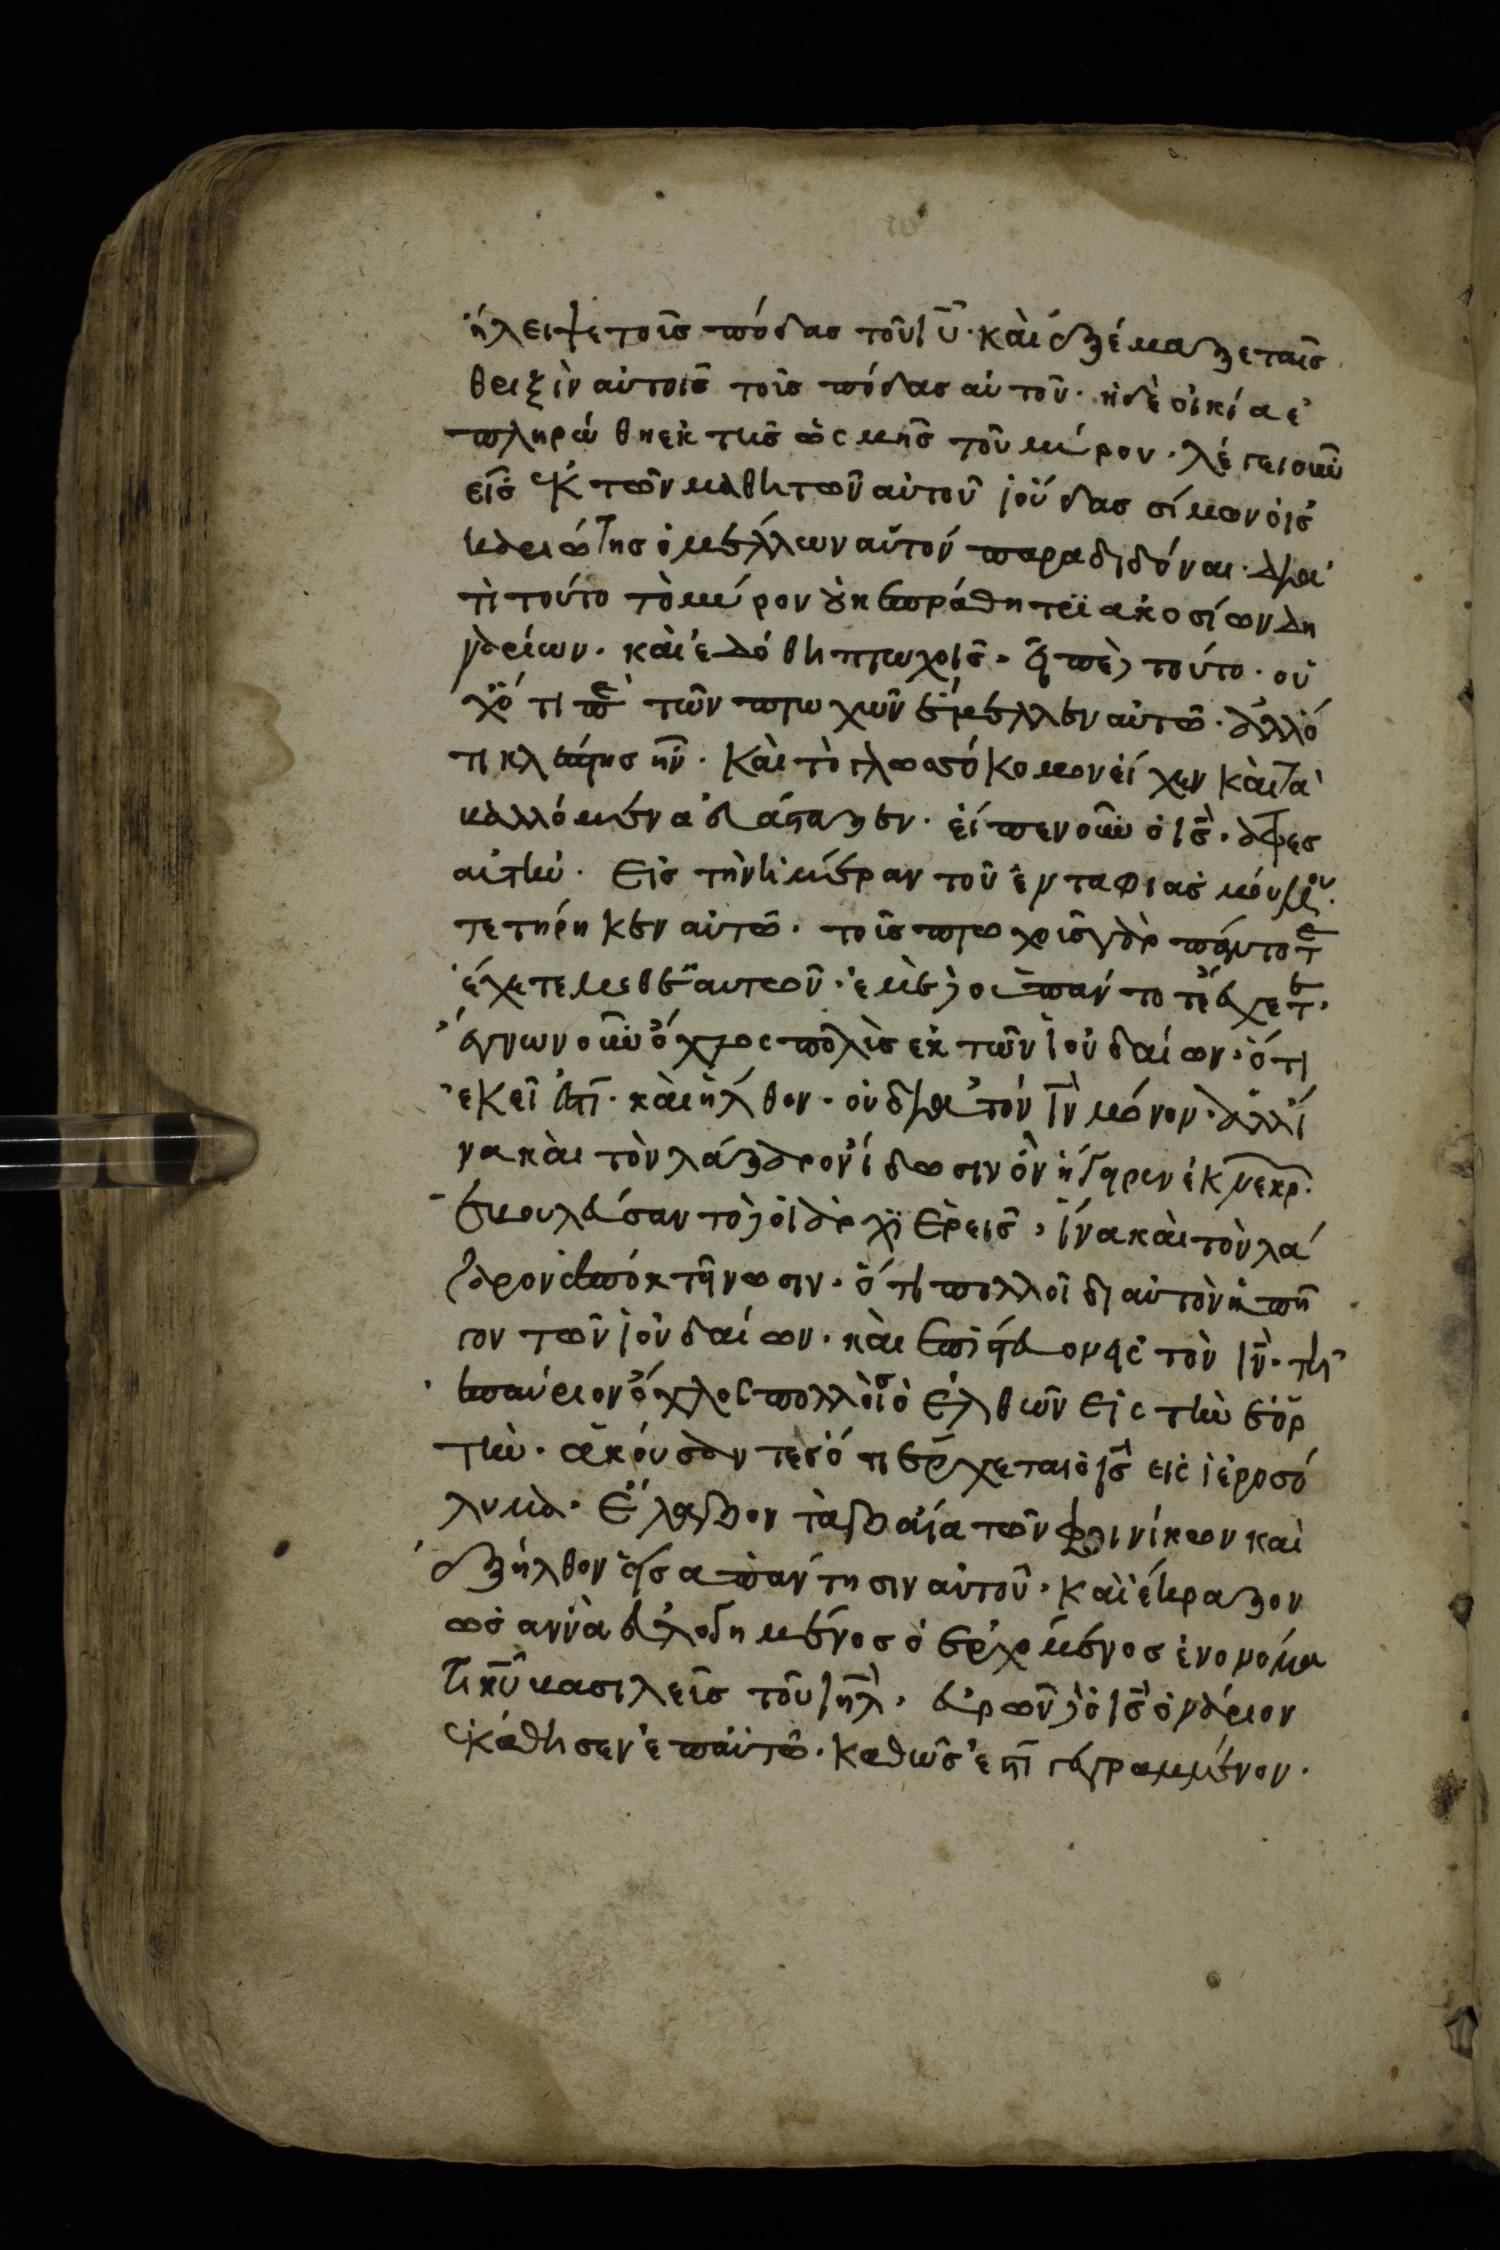 ἤλειψε τοῖς πόδας τοῦ ιυ̅· καὶ ἐξέμαξε ταῖς
θριξὶν αὐτοῖς τοῖς πόδας αὐτοῦ· ἡ δὲ οἰκία ἐ
πληρώθη ἐκ τῆς ὀσμῆς τοῦ μύρου· λέγει οὖν
εἷς ἐκ τῶν μαθητῶν αὐτοῦ ἰούδας σίμων ὁ ἰσ
καριώτης ὁ μέλλων αὐτόν παραδιδόναι· διὰ
τὶ τούτο τὸ μύρον οὐκ ἐπράθη τριακοσίων δη
ναρίων· καὶ ἐδόθη πτωχοῖς· εἶπε δὲ τούτο· οὐ
χ ὅτι περὶ τῶν πτωχῶν ἔμελλεν αὐτῶ· ἀλλ ὅ
τι κλέπτης ἦν· καὶ τὸ γλωσσόκομον εἴχεν καὶ τὰ
βαλλόμενα ἐβάσταζεν· εἴπεν οὖν ὁ ις̅· ἄφες
αὐτήν· εἰς τὴν ἡμέραν τοῦ ἐνταφιασμού μου
τετήρηκεν αὐτῶ· τοῖς πτωχοῖς γὰρ πάντοτε
ἔχετε μεθ ἑαυτῶν· ἐμὲ δὲ οὐ πάντοτε ἔχετε·
ἔγνων οὖν ὄχλος πολὺς ἐκ τῶν ἰουδαίων· ὅτι
ἐκεῖ ἐστι· καὶ ἦλθον· οὐ διὰ τόν ιν̅ μόνον· ἀλλ ἵ
να καὶ τὸν λάζαρον ἴδωσιν ὃν ἤγειρεν ἐκ νεκρ·
ἐβουλεύσαντο δὲ οἱ ἀρχιερεῖς, ἵνα καὶ τὸν λά
ζαρον ἀποκτήνωσιν· ὅτι πολλοὶ δι αὐτὸν ὑπῆ
γον τῶν ἰουδαίων· καὶ ἐπίστευον εἰς τὸν ιν̅· τῆ
ἐπαύριον ὄχλος πολλοῖς ὁ ἐλθῶν εἰς τὴν ἑορ
τὴν· ἀκούσαντες ὅτι ἔρχεται ὁ ις̅ εἰς ἱεροσό
λυμα· ἔλαβον τὰ βαΐα τῶν φοινίκων καὶ
ἐξήλθον εἰς ἀπάντησιν αὐτοῦ· καὶ ἔκραζον
ὡσαννὰ εὐλογημένος ὁ ἐρχόμενος ἐν ὀνόμα
τι κυ̅ βασιλεῖς τοῦ ιηλ̅· εὑρῶν δὲ ὁ ις̅ ὀνάριον
ἐκάθησεν ἐπ αὐτῶ· καθῶς ἐστι γεγραμμένον·